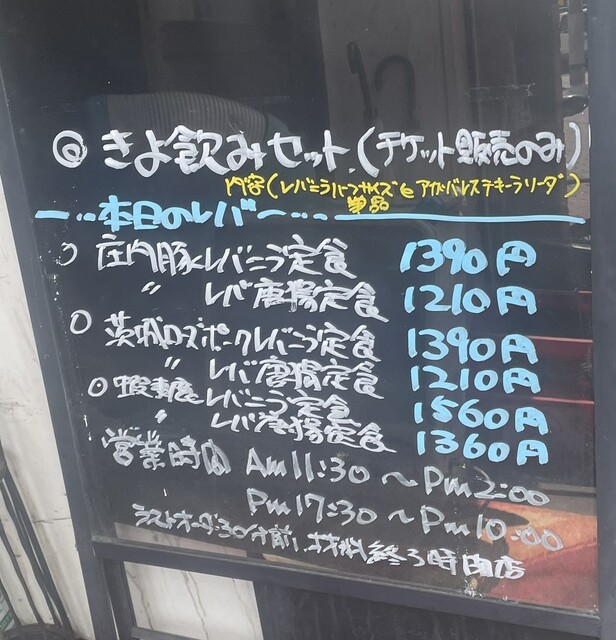 ◎ きよ飲みセット、(チケット販売のみ)
内容(レバニラハーフサイズ単品とアイスバレステキーラソーダ)
本日のレバー
○ 庄内豚レバニラ定食 1390円
〃 レバ唐揚定食 1210円
○ 茨城ローズポークレバニラ定食 1390円
〃 レバ唐揚定食 1210円
○ レバニラ定食 1560円
〃 レバ唐揚定食 1360円
営業時間 Am11:30～Pm2:00
Pm17:30～Pm10:00
ラストオーダー30分前、材料終了時閉店